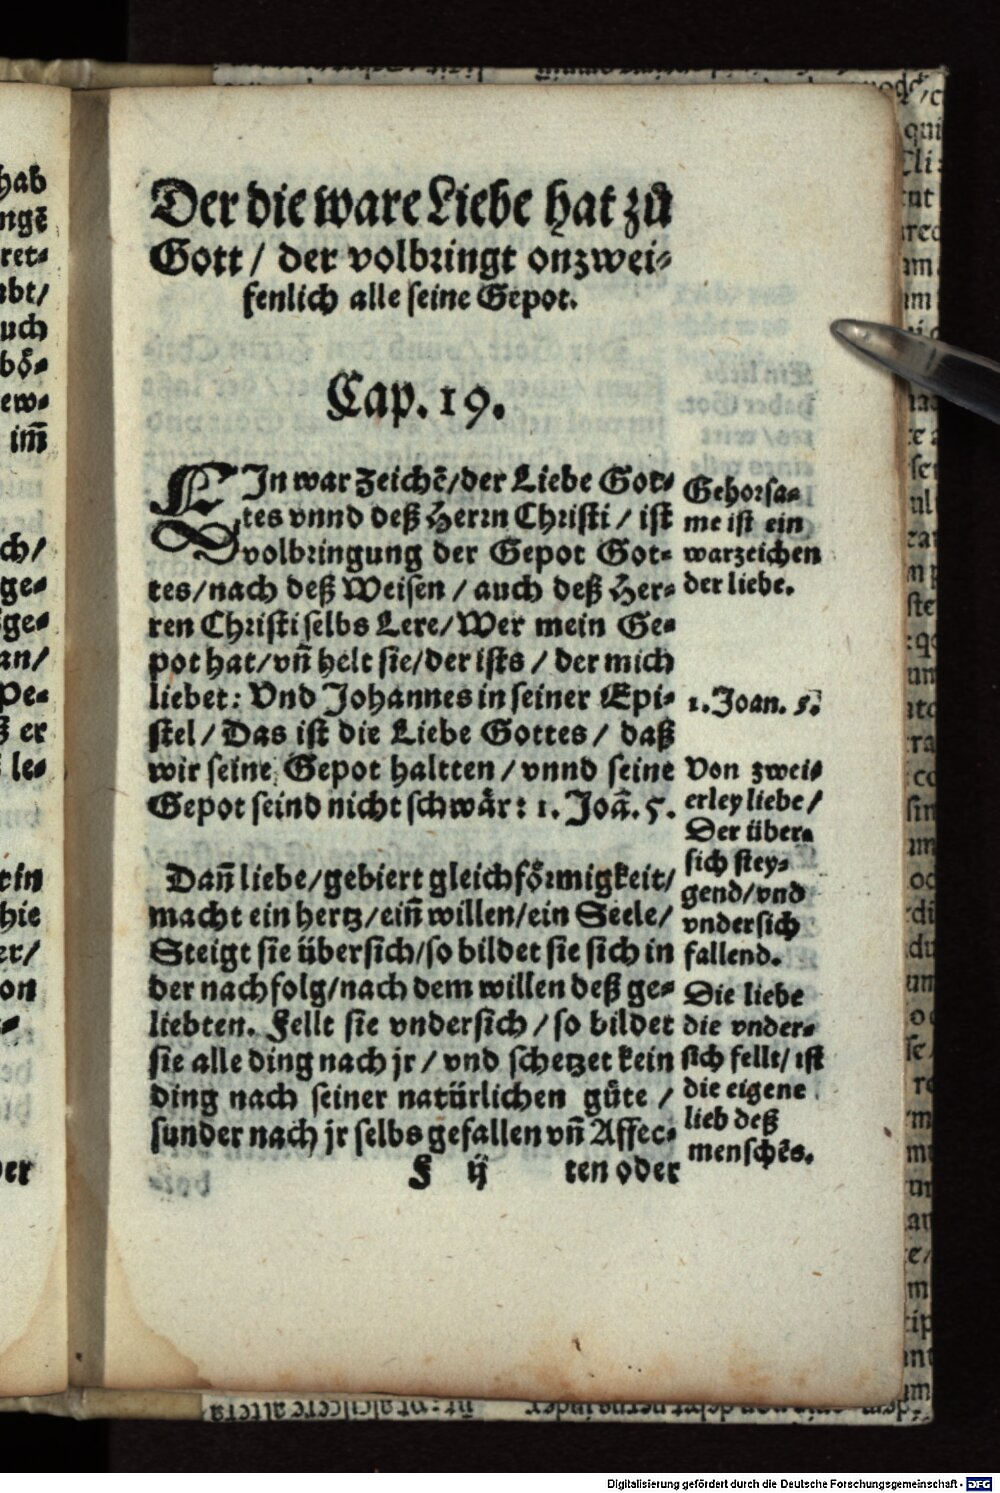 Der die ware Liebe hat zů
Gott / der volbringt onzwei-
fenlich alle seine Gepot.
Cap. 19.
EIn war zeichē/der Liebe Got-
tes vnnd deß Herrn Christi / ist
volbringung der Gepot Got-
tes/nach deß Weisen / auch deß Her-
ren Christi selbs Lere/Wer mein Ge-
pot hat/vñ helt sie/der ists / der mich
liebet: Vnd Johannes in seiner Epi-
stel / Das ist die Liebe Gottes / daß
wir seine Gepot haltten / vnnd seine
Gepot seind nicht schwår: 1. Joã. 5.
Dañ liebe/gebiert gleichfőrmigkeit/
macht ein hertz/eiñ willen/ein Seele/
Steigt sie übersich/so bildet sie sich in
der nachfolg/nach dem willen deß ge-
liebten. Fellt sie vndersich / so bildet
sie alle ding nach jr / vnd schetzet kein
ding nach seiner natürlichen güte /
sunder nach jr selbs gefallen vñ Affec-
F ij ten oder
Gehorsa-
me ist ein
warzeichen
der liebe.
1. Joan. 5.
Von zwei-
erley liebe /
Der über-
sich stey-
gend/vnd
vndersich
fallend.
Die liebe
die vnder-
sich fellt/ist
die eigene
lieb deß
menschēs.
hab
ngē
ret-
bt/
uch
bő-
ew-
im̄
ch/
ge-
ge-
an/
Pe-
er
le-
rin
hie
er/
on
er
Digitalisierung gefördert durch die Deutsche Forschungsgemeinschaft - DFG